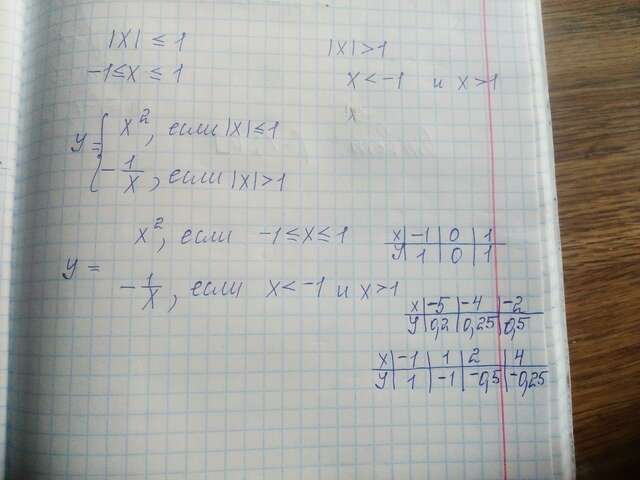 |X| ≤ 1
|X| > 1
-1 ≤ X ≤ 1
X < -1 и X > 1
y = { X², если |X| ≤ 1
-1/X, если |X| > 1
y = X², если -1 ≤ X ≤ 1
-1/X, если X < -1 и X > 1
X | -1 | 0 | 1
y | 1 | 0 | 1
X | -5 | -4 | -2
y | 0,2 | 0,25 | 0,5
X | -1 | 1 | 2 | 4
y | 1 | -1 | -0,5 | -0,25